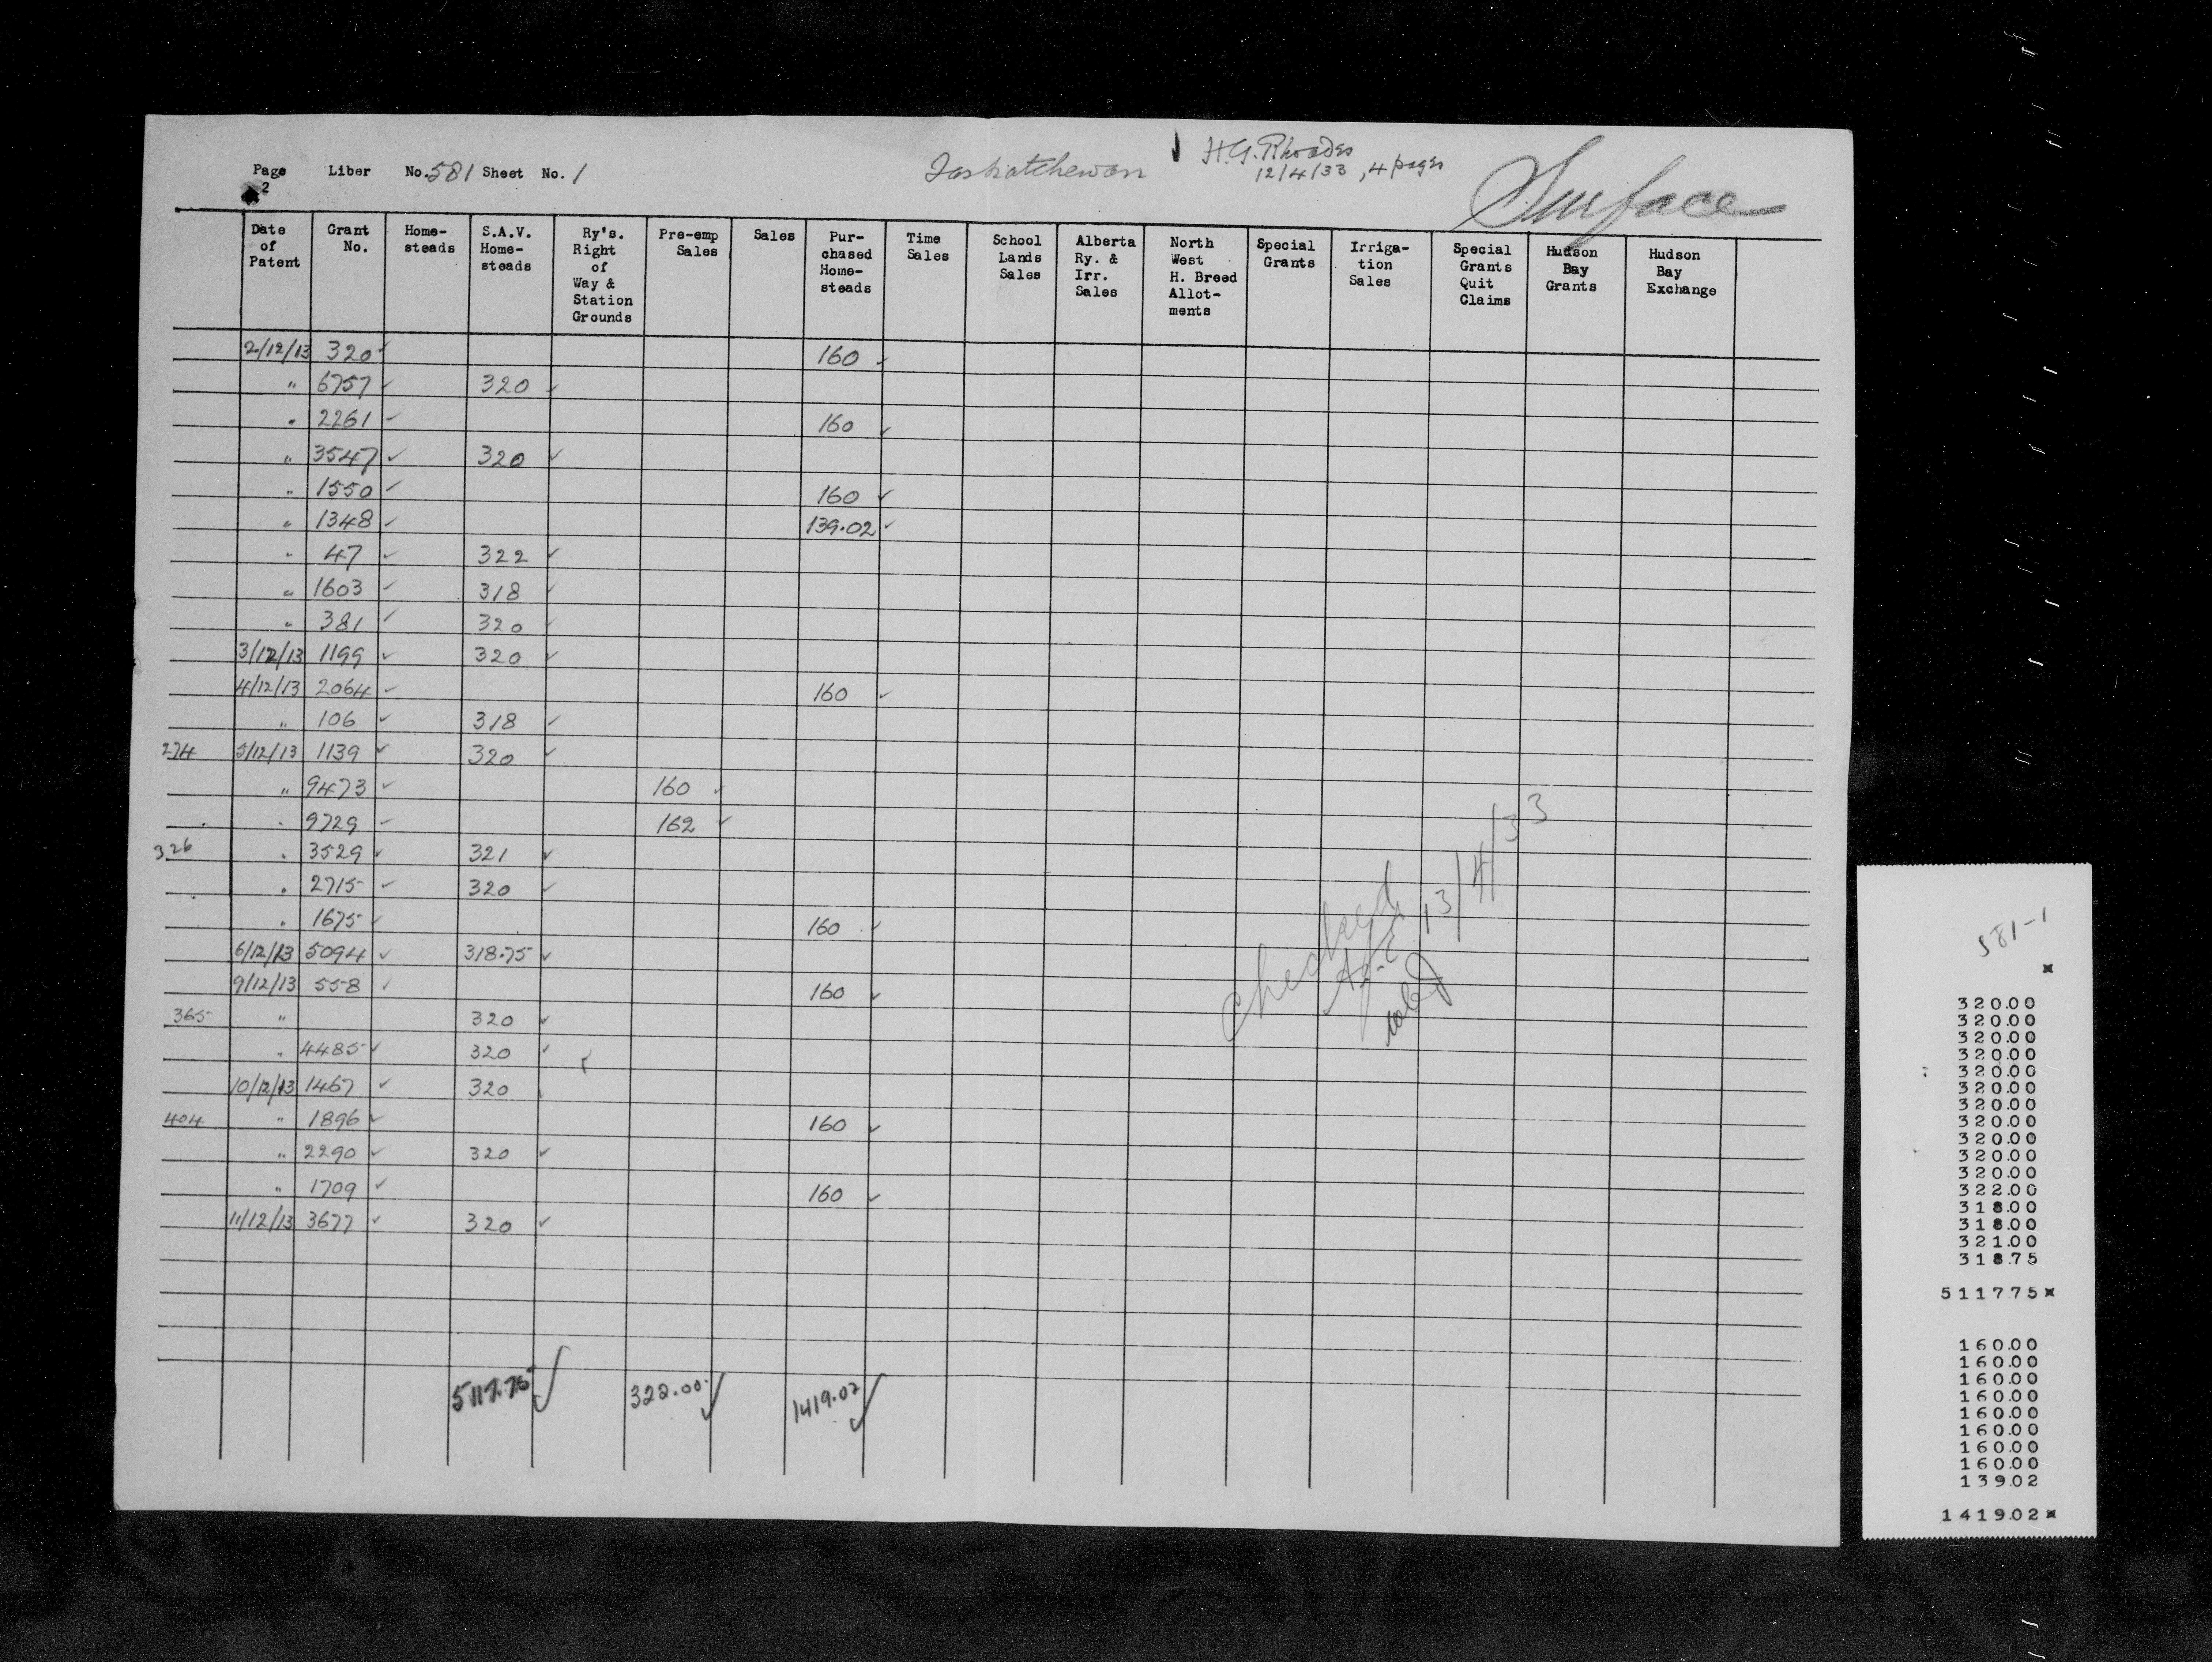 Page Liber No. 581 Sheet No. 1
2
Saskatchewan
H.G. Rhoades
12/4/33, 4 pages
Surface
Date of Patent | Grant No. | Home-steads | S.A.V. Home-steads | Ry's. Right of Way & Station Grounds | Pre-emp Sales | Sales | Pur-chased Home-steads | Time Sales | School Lands Sales | Alberta Ry. & Irr. Sales | North West H. Breed Allot-ments | Special Grants | Irriga-tion Sales | Special Grants Quit Claims | Hudson Bay Grants | Hudson Bay Exchange
2/12/13 320 ✓ 160 ✓
" 6757 ✓ 320 ✓
" 2261 ✓ 160 ✓
" 3547 ✓ 320 ✓
" 1550 ✓ 160 ✓
" 1348 ✓ 139.02 ✓
" 47 ✓ 322 ✓
" 1603 ✓ 318 ✓
" 381 ✓ 320 ✓
3/12/13 1199 ✓ 320 ✓
4/12/13 2064 ✓ 160 ✓
" 106 ✓ 318 ✓
274 5/12/13 1139 ✓ 320 ✓
" 9473 ✓ 160 ✓
" 9729 ✓ 162 ✓
326 " 3529 ✓ 321 ✓
" 2715 ✓ 320 ✓
" 1675 ✓ 160 ✓
6/12/13 5094 ✓ 318.75 ✓
9/12/13 558 ✓ 160 ✓
365 " 320 ✓
" 4485 ✓ 320 ✓
10/12/13 1467 ✓ 320
404 " 1896 ✓ 160 ✓
" 2290 ✓ 320 ✓
" 1709 ✓ 160 ✓
11/12/13 3677 ✓ 320 ✓
5117.75 ✓ 322.00 ✓ 1419.02 ✓
Checked
13/4/33
581-1
320.00
320.00
320.00
320.00
320.00
320.00
320.00
320.00
320.00
320.00
320.00
322.00
318.00
318.00
321.00
318.75
5117.75
160.00
160.00
160.00
160.00
160.00
160.00
160.00
160.00
139.02
1419.02